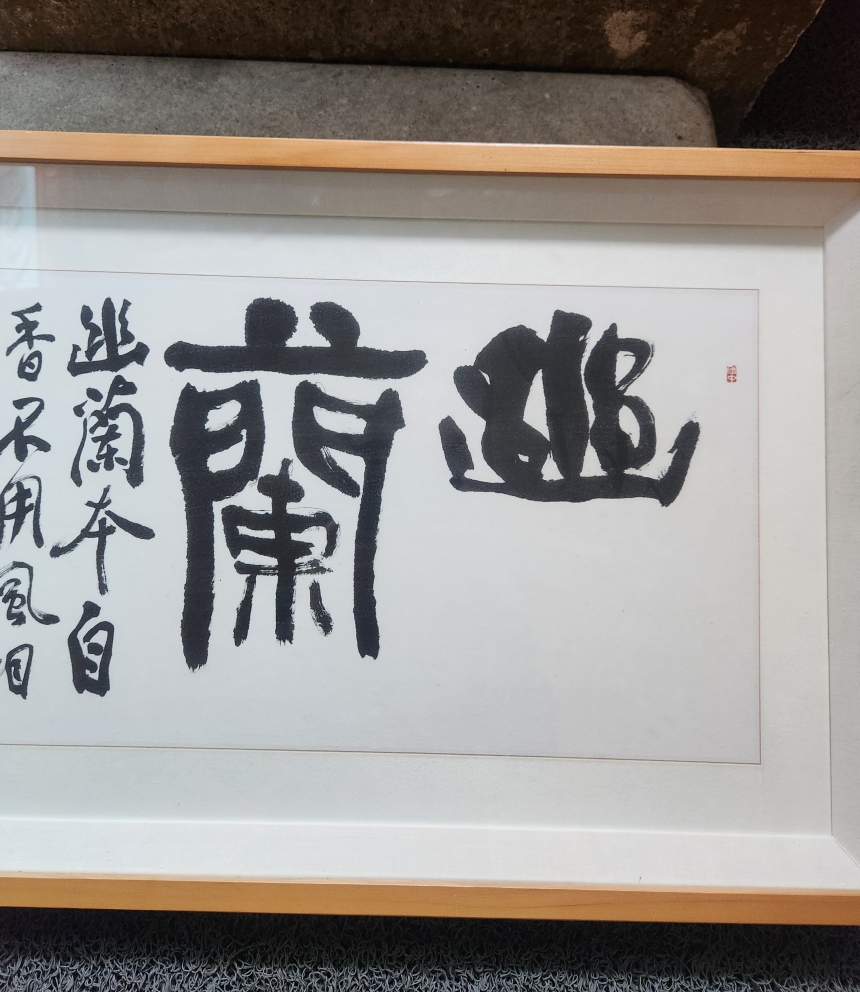 幽蘭
幽蘭本自
香不用風